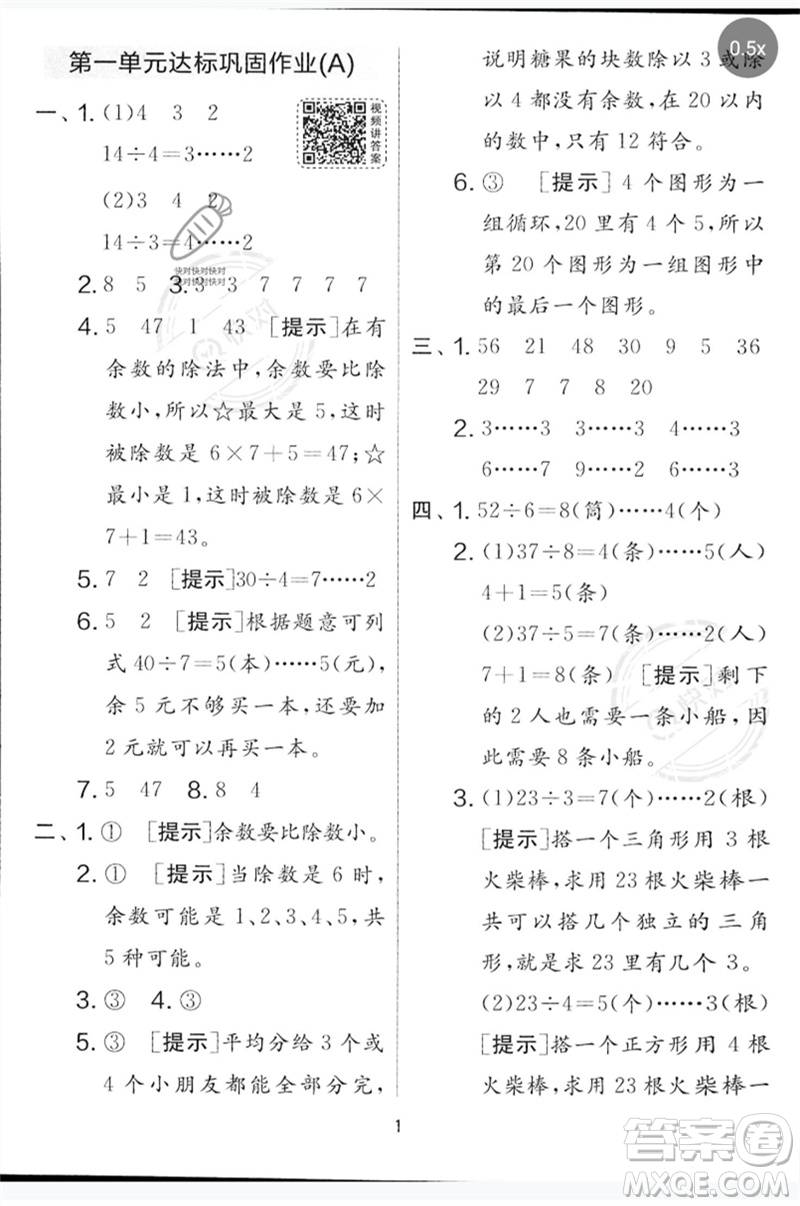 第一单元达标巩固作业(A)
一、1. (1)4 3 2
14÷4=3……2
(2)3 4 2
14÷3=4……2
视频讲答案
快对快对快对
快对快对快对
2. 8 5 3. 3 3 7 7 7 7
4. 5 47 1 43 [提示]在有
余数的除法中,余数要比除
数小,所以☆最大是5,这时
被除数是6×7+5=47;☆
最小是1,这时被除数是6×
7+1=43。
5. 7 2 [提示]30÷4=7……2
6. 5 2 [提示]根据题意可列
式40÷7=5(本)……5(元),
余5元不够买一本,还要加
2元就可以再买一本。
7. 5 47 8. 8 4
二、1. ① [提示]余数要比除数小。
2. ① [提示]当除数是6时,
余数可能是1、2、3、4、5,共
5种可能。
3. ③ 4. ③
5. ③ [提示]平均分给3个或
4个小朋友都能全部分完,
0.5x
说明糖果的块数除以3或除
以4都没有余数,在20以内
的数中,只有12符合。
6. ③ [提示]4个图形为一
组循环,20里有4个5,所以
第20个图形为一组图形中
的最后一个图形。
三、1. 56 21 48 30 9 5 36
29 7 7 8 20
2. 3……3 3……3 4……3
6……7 9……2 6……2
四、1. 52÷6=8(筒)……4(个)
2. (1)37÷8=4(条)……5(人)
4+1=5(条)
(2)37÷5=7(条)……2(人)
7+1=8(条) [提示]剩下
的2人也需要一条小船,因
此需要8条小船。
3. (1)23÷3=7(个)……2(根)
[提示]搭一个三角形用3根
火柴棒,求用23根火柴棒一
共可以搭几个独立的三角
形,就是求23里有几个3。
(2)23÷4=5(个)……3(根)
[提示]搭一个正方形用4根
火柴棒,求用23根火柴棒一
1
答案卷
MXQE.COM